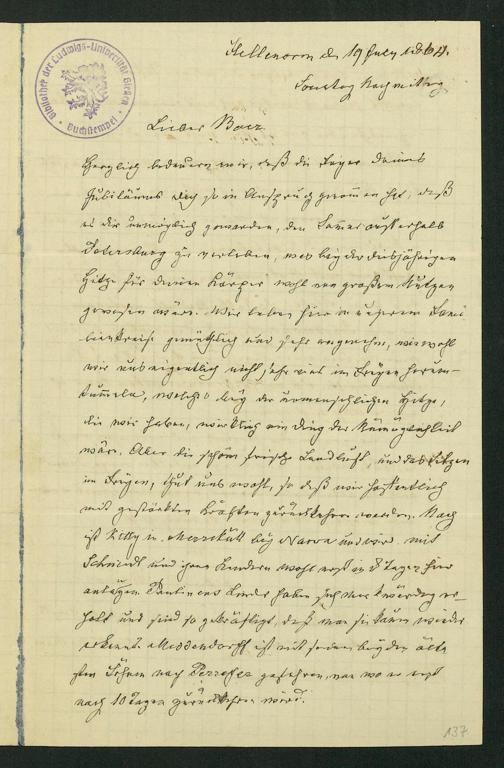 Bibliothek der Ludwigs-Universität Giessen
Buchstempel
Hellenorm d. 19 July 1864.
Sonntag Nachmittag
Lieber Baer
Herzlich bedauern wir, daß die Feyer deines
Jubiläums dich so in Anspruch genommen hat, daß
es dir unmöglich geworden, den Sommer außerhalb
Petersburg zu verleben, was bey der diesjährigen
Hitze für deinen Körper wohl von großem Nutzen
gewesen wäre. Wir leben hier in unserem Fami
lienkreise gemüthlich und sehr angenehm, wiewohl
wir uns eigentlich nicht sehr viel im Freyen herum-
tummeln, welches bey der unmenschlichen Hitze,
die wir haben, wirklich ein Ding der Unmöglichkeit
wäre. Aber die schöne frische Landluft, und das Sitzen
im Freyen, thut uns wohl, so daß wir hoffentlich
mit gestärkten Kräften zurückkehren werden. Noch
ist Kitty in Merreküll bey Narva und wird mit
Schmidt und ihren Kindern wohl erst in 8 Tagen hier
anlangen. Paulinens Kinder haben sich merkwürdig er-
holt und sind so gekräftigt, daß man sie kaum wieder
erkennt. Middendorff ist mit seinen beyden älte
sten Söhnen nach gefahren, von wo er erst
nach 10 Tagen zurückkehren wird.
137